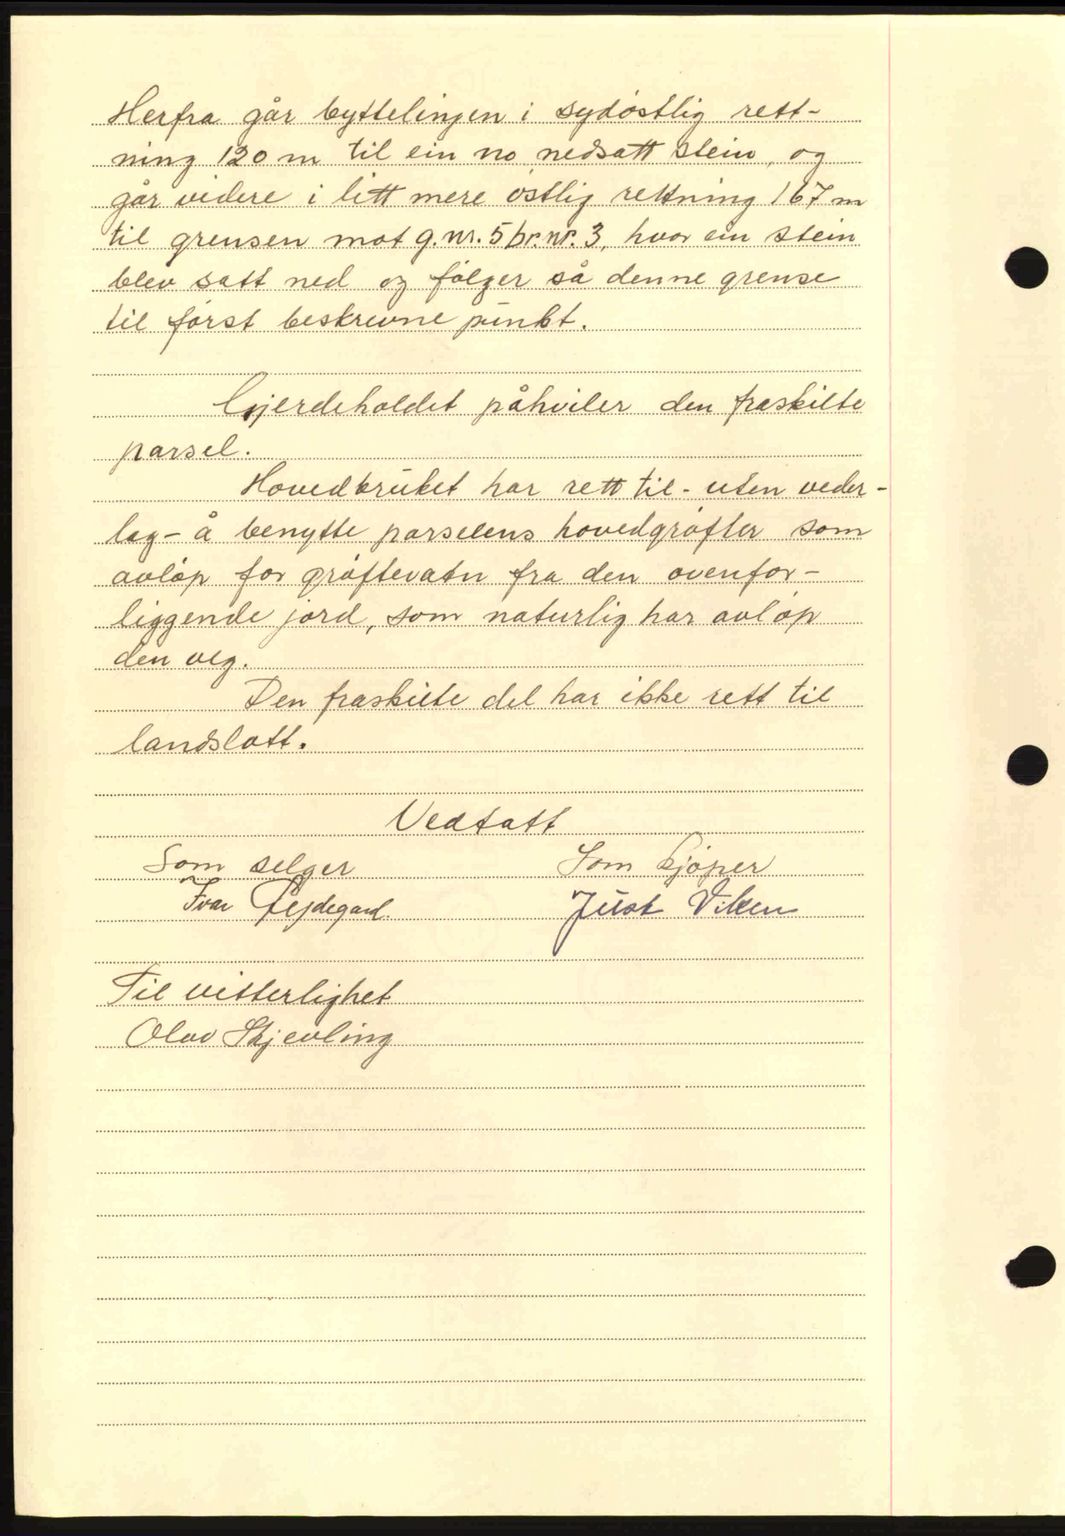 Herfra går byttelinjen i sydøstlig rett-
ning 120 m til ein no nedsatt stein, og
går videre i litt mere østlig rettning 167 m
til grensen mot g.nr. 5 br.nr. 3, hvor ein stein
blev satt ned og følger så denne grense
til først beskrevne punkt.
Gjerdeholdet påhviler den fraskilte
parsel.
Hovedbruket har rett til - uten veder-
lag - å benytte parselens hovedgrøfter som
avløp for grøftevatn fra den ovenfor-
liggende jord, som naturlig har avløp
den veg.
Den fraskilte del har ikke rett til
landslott.
Vedtatt
Som selger Som kjøper
Ivar Just Viken
Til vitterlighet
Olav Skjevling